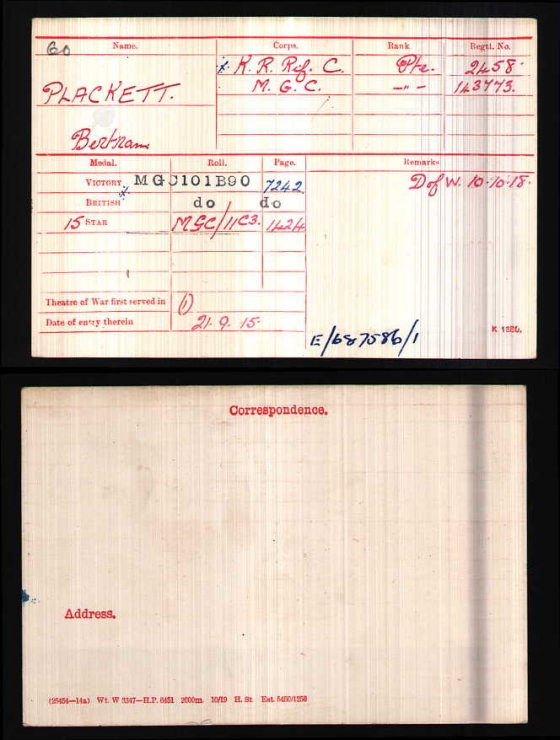 60 Name. Corps. Rank. Regtl. No.
x K. R. Rif. C. Pte. 2458
PLACKETT. M. G. C. —"— 143775.
Bertram
Medal. Roll. Page. Remarks
VICTORY x MGC101B90 7242 D of W. 10.10.18.
BRITISH do do
15 STAR MGC/11C3. 1424
Theatre of War first served in (1)
Date of entry therein 21.9.15.
E/687586/1 K 1380.
Correspondence.
Address.
(25454—14a) Wt. W 3347—H.P. 6451 2000m. 10/19 H. St. Est. 5450/1258